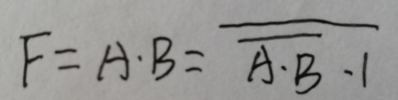 F = A·B = \overline{\overline{A·B}·1}